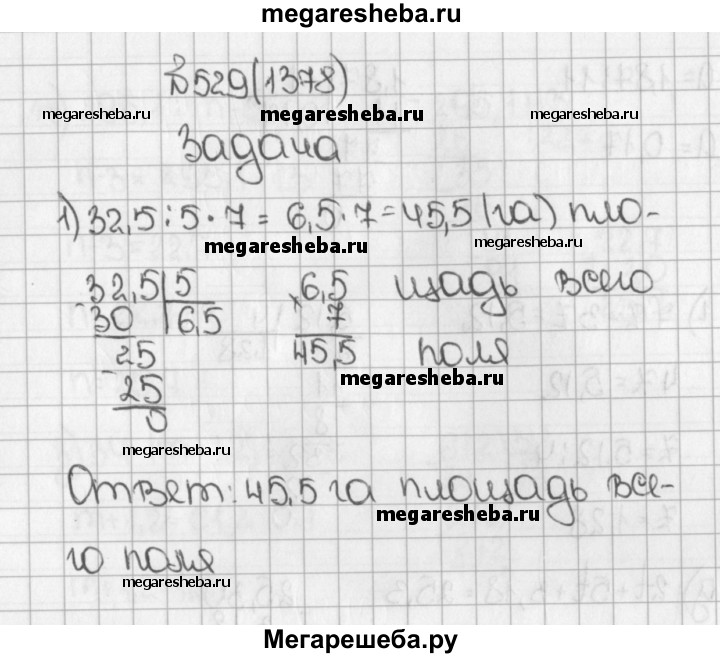 megaresheba.ru
№529(1378)
megaresheba.ru megaresheba.ru megaresheba.ru
Задача
1) 32,5:5·7=6,5·7=45,5(га) пло-
megaresheba.ru megaresheba.ru
32,5|5 ×6,5 щадь всего
-30 |6,5 7
-25 45,5 поля
megaresheba.ru
25
0
megaresheba.ru
Ответ: 45,5 га площадь все-
megaresheba.ru
го поля
megaresheba.ru megaresheba.ru
Мегарешеба.ру